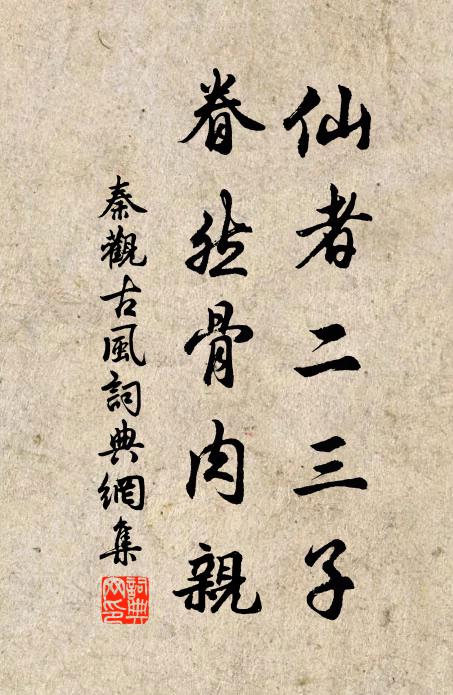 仙者二三子
眷然骨肉親
秦觀古風詞典網集
詞典網印